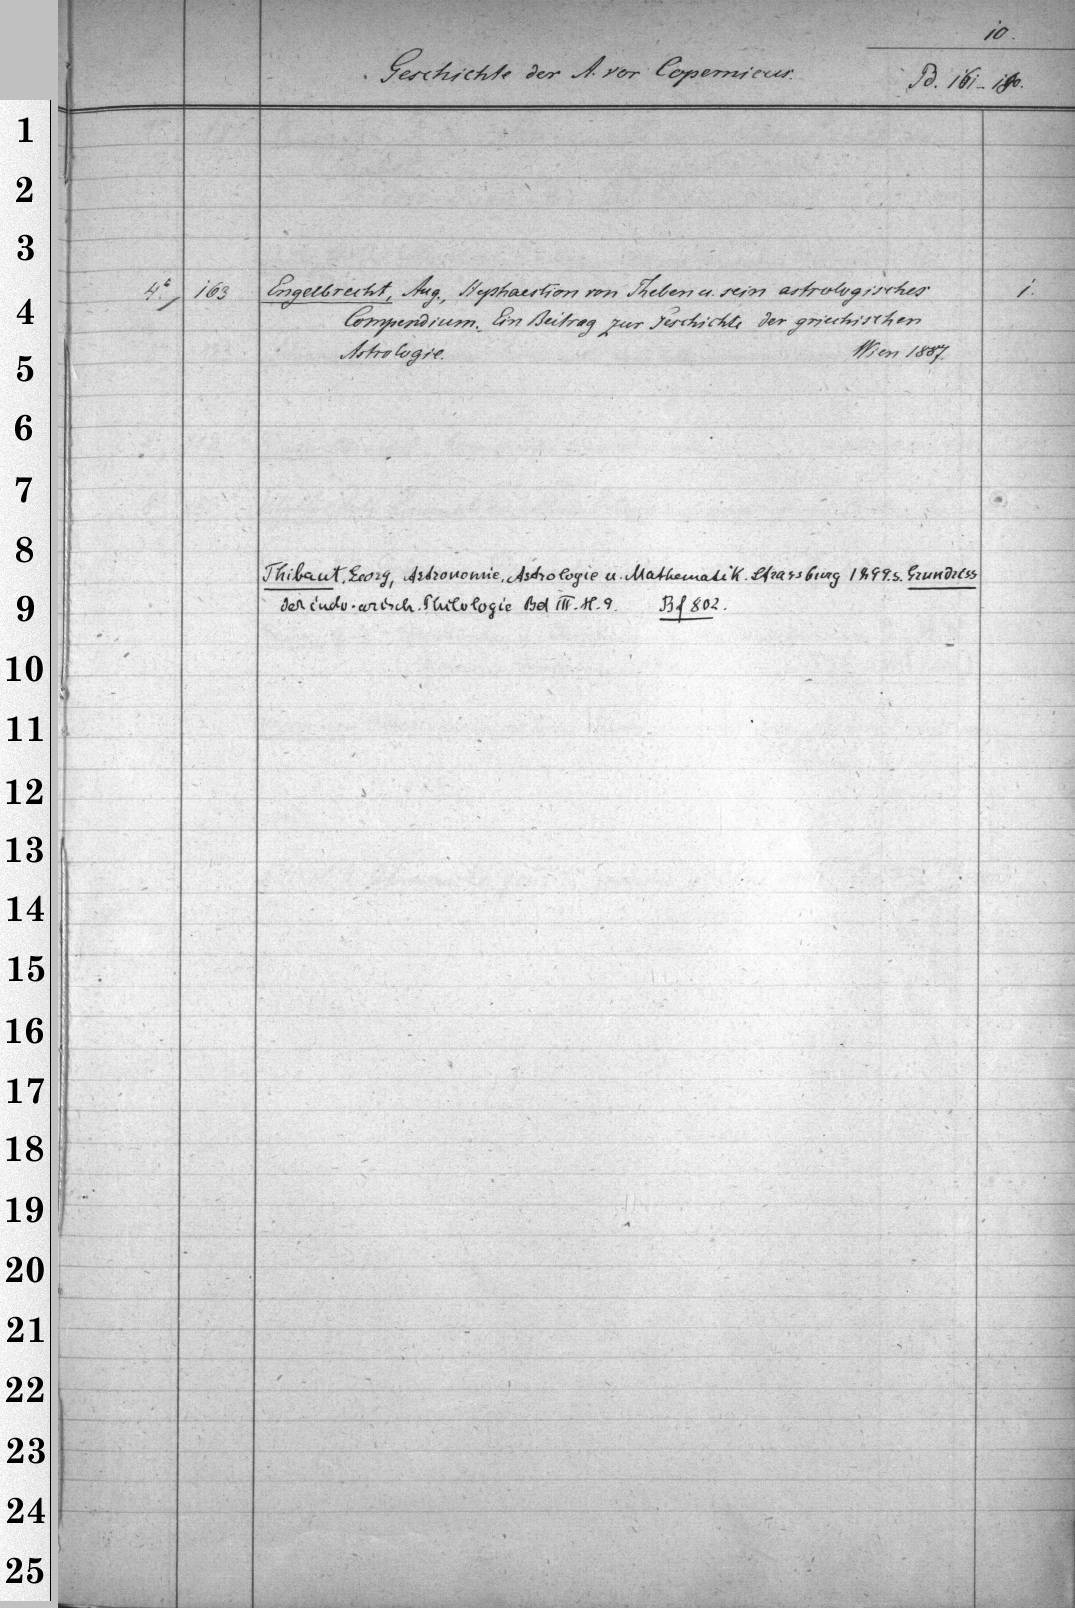 10.
Geschichte der A. vor Copernicus.
Pd. 161-190.
1
2
3
4º, 163 Engelbrecht, Aug., Hephaestion von Theben u. sein astrologisches 1.
4
Compendium. Ein Beitrag zur Geschichte der griechischen
Astrologie. Wien 1887.
5
6
7
8
Thibaut, Georg, Astronomie, Astrologie u. Mathematik. Strassburg 1899. s. Grundriss
9
der indo-arisch. Philologie Bd III. H. 9. Bf 802.
10
11
12
13
14
15
16
17
18
19
20
21
22
23
24
25